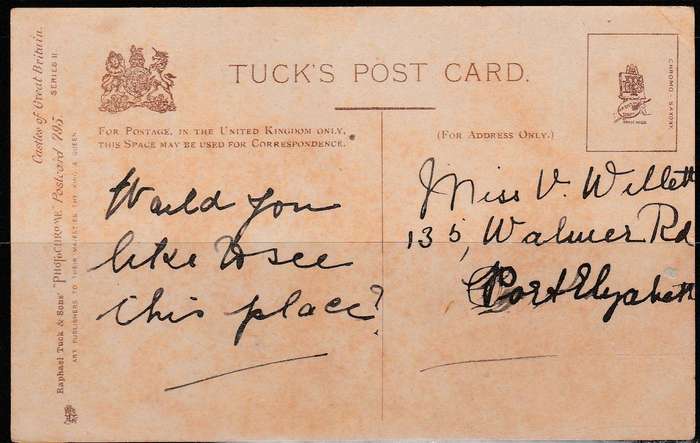 TUCK'S POST CARD.
FOR POSTAGE, IN THE UNITED KINGDOM ONLY,
THIS SPACE MAY BE USED FOR CORRESPONDENCE.
(FOR ADDRESS ONLY.)
Would you
like to see
this place?
Miss V. Willett
135, Walmer Rd
Port Elizabeth
Castles of Great Britain.
SERIES II
Raphael Tuck & Sons' "PHOTOCHROME" Postcard 795
ART PUBLISHERS TO THEIR MAJESTIES THE KING & QUEEN.
CHROMO - SAXONY